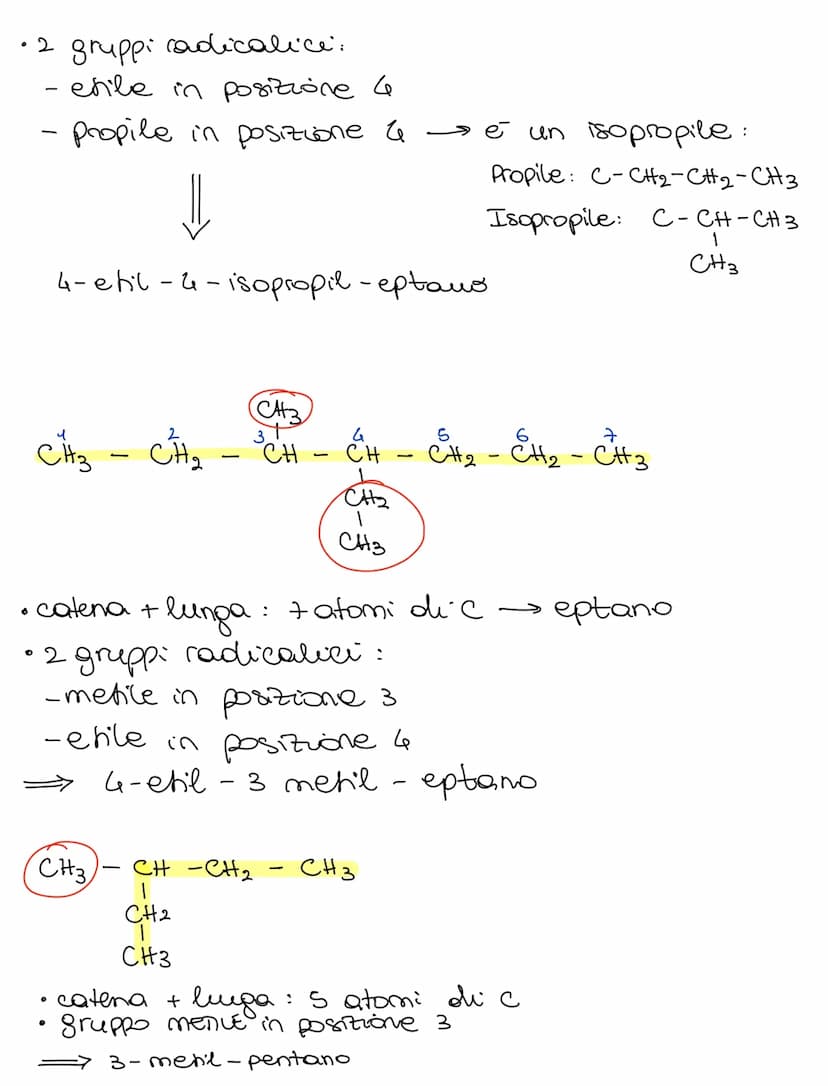 • 2 gruppi radicalici:
- etile in posizione 4
- propile in posizione 4 → è un isopropile:
Propile: C-CH2-CH2-CH3
Isopropile: C-CH-CH3
CH3
4-etil-4-isopropil-eptano
CH3
1 2 3 4 5 6 7
CH3 - CH2 - CH - CH - CH2 - CH2 - CH3
CH2
CH3
• catena + lunga: 7 atomi di C → eptano
• 2 gruppi radicalici:
- metile in posizione 3
- etile in posizione 4
⇒ 4-etil-3 metil-eptano
CH3 - CH - CH2 - CH3
CH2
CH3
• catena + lunga: 5 atomi di C
• gruppo metile in posizione 3
⇒ 3-metil-pentano